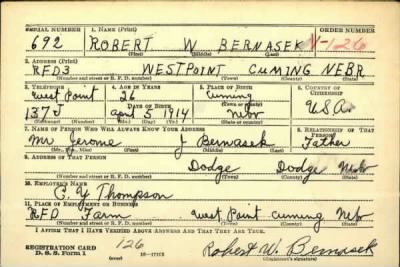 SERIAL NUMBER 1. NAME (Print) ORDER NUMBER
692 ROBERT W BERNASEK V-126
(First) (Middle) (Last)
2. ADDRESS (Print)
RFD3 WESTPOINT CUMING NEBR
(Number and street or R. F. D. number) (Town) (County) (State)
3. TELEPHONE 4. AGE IN YEARS 5. PLACE OF BIRTH 6. COUNTRY OF CITIZENSHIP
West Point 26 Cuming
DATE OF BIRTH
137J April 5 1914 Nebr U.S.A.
(Exchange) (Number) (Mo.) (Day) (Yr.) (Town or county) (State or country)
7. NAME OF PERSON WHO WILL ALWAYS KNOW YOUR ADDRESS 8. RELATIONSHIP OF THAT PERSON
Mr Jerome J Bernasek Father
(Mr., Mrs., Miss) (First) (Middle) (Last)
9. ADDRESS OF THAT PERSON
Dodge Dodge Nebr
(Number and street or R. F. D. number) (Town) (County) (State)
10. EMPLOYER'S NAME
C. Y Thompson
11. PLACE OF EMPLOYMENT OR BUSINESS
RFD Farm West Point Cuming Nebr
(Number and street or R. F. D. number) (Town) (County) (State)
I AFFIRM THAT I HAVE VERIFIED ABOVE ANSWERS AND THAT THEY ARE TRUE.
REGISTRATION CARD 126
D. S. S. Form 1 (over) Robert W. Bernasek
(Registrant's signature)